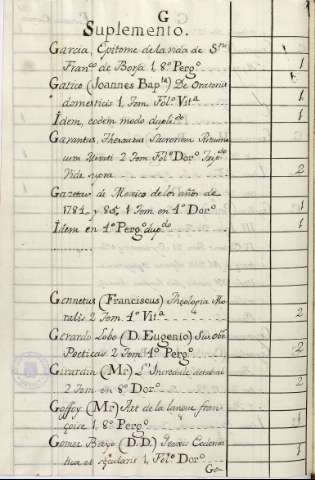 G
Suplemento.
Garcia, Epitome de la vida de Sto
Franco de Borja 1, 8o Pergo 1
Gatico (Joannes Bapta) De Oratoriis
domesticis 1, Tom. Folo Vita 1
Idem, eodem modo duplido 1
Garantus, Thesaurus Sacrorum Rituum
2 Tom Folo Doro
Vide supra 2
Gazetas de Mexico de los años de
1784 y 85, 1 Tom en 4o Doro 1
Idem en 4o Pergo dupdo 1
Gennetus (Franciscus) Theologia Mo-
ralis 2 Tom. 4o Vita 2
Gerardo Lobo (D. Eugenio) Sus Obs
Poeticas 2 Tom. 4o Pergo 2
Girardin (Mr)
2 Tom en 8o Doro 2
Goffey (Mr) Art de la langue fran-
çoise 1, 8o Pergo 1
Gomez Bayo (D. D.) Praxis Eclesias-
tica et secularis 1, Folo Doro 1
Go-